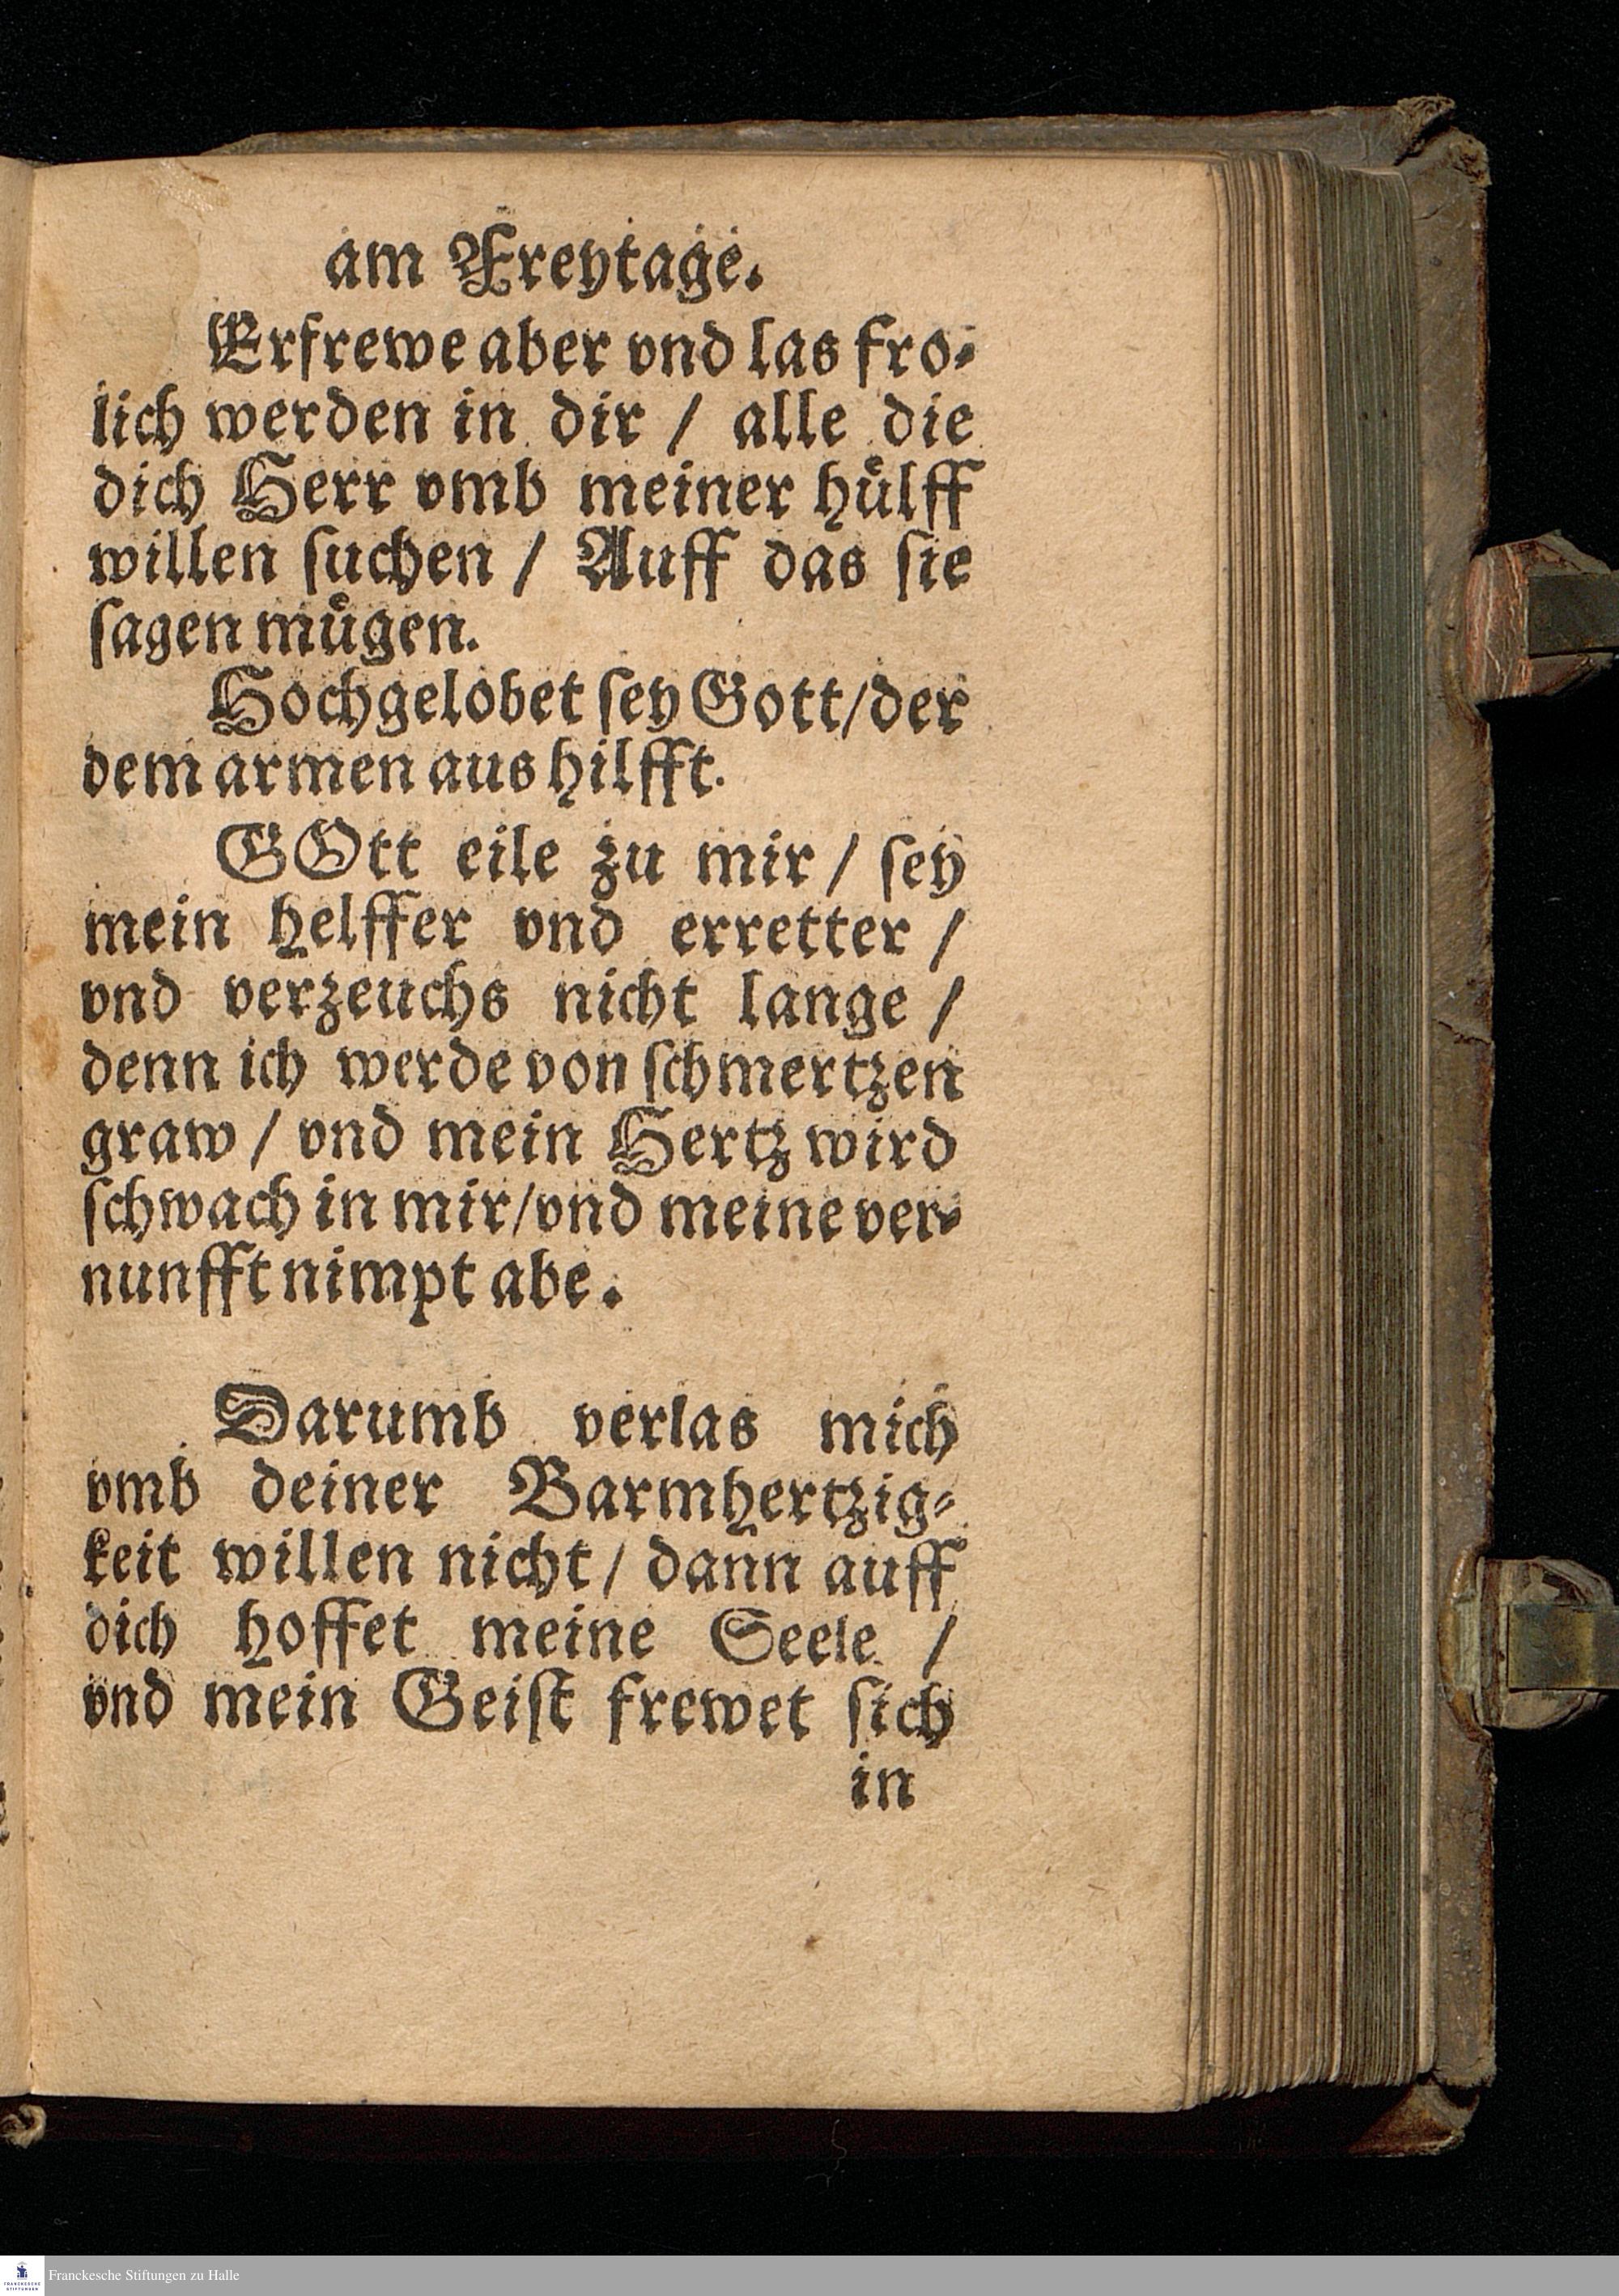 am Freytage.
Erfrewe aber vnd las fro⸗
lich werden in dir / alle die
dich Herr vmb meiner huͤlff
willen ſuchen / Auff das ſie
ſagen muͤgen.
Hochgelobet ſey Gott/der
dem armen aus hilfft.
GOtt eile zu mir / ſey
mein helffer vnd erretter /
vnd verzeuchs nicht lange /
denn ich werde von ſchmertzen
graw / vnd mein Hertz wird
ſchwach in mir/vnd meine ver⸗
nunfft nimpt abe.
Darumb verlas mich
vmb deiner Barmhertzig⸗
keit willen nicht / dann auff
dich hoffet meine Seele /
vnd mein Geiſt frewet ſich
in
FRANCKESCHE STIFTUNGEN
Franckesche Stiftungen zu Halle